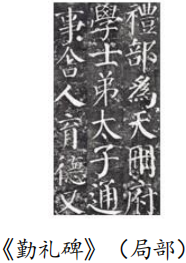 禮部為天冊府
學士弟太子通
事舍人育德又
《勤礼碑》（局部）